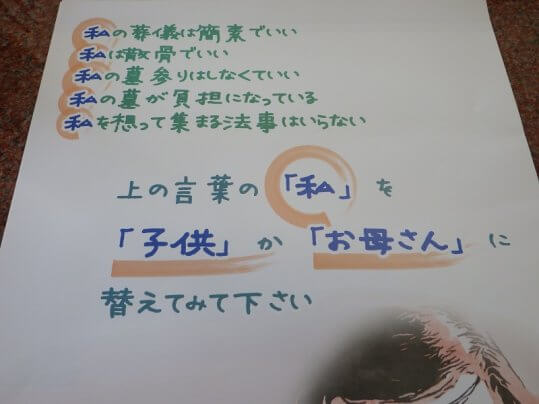 私の葬儀は簡素でいい
私は散骨でいい
私の墓参りはしなくていい
私の墓が負担になっている
私を想って集まる法事はいらない
上の言葉の「私」を
「子供」か「お母さん」に
替えてみて下さい